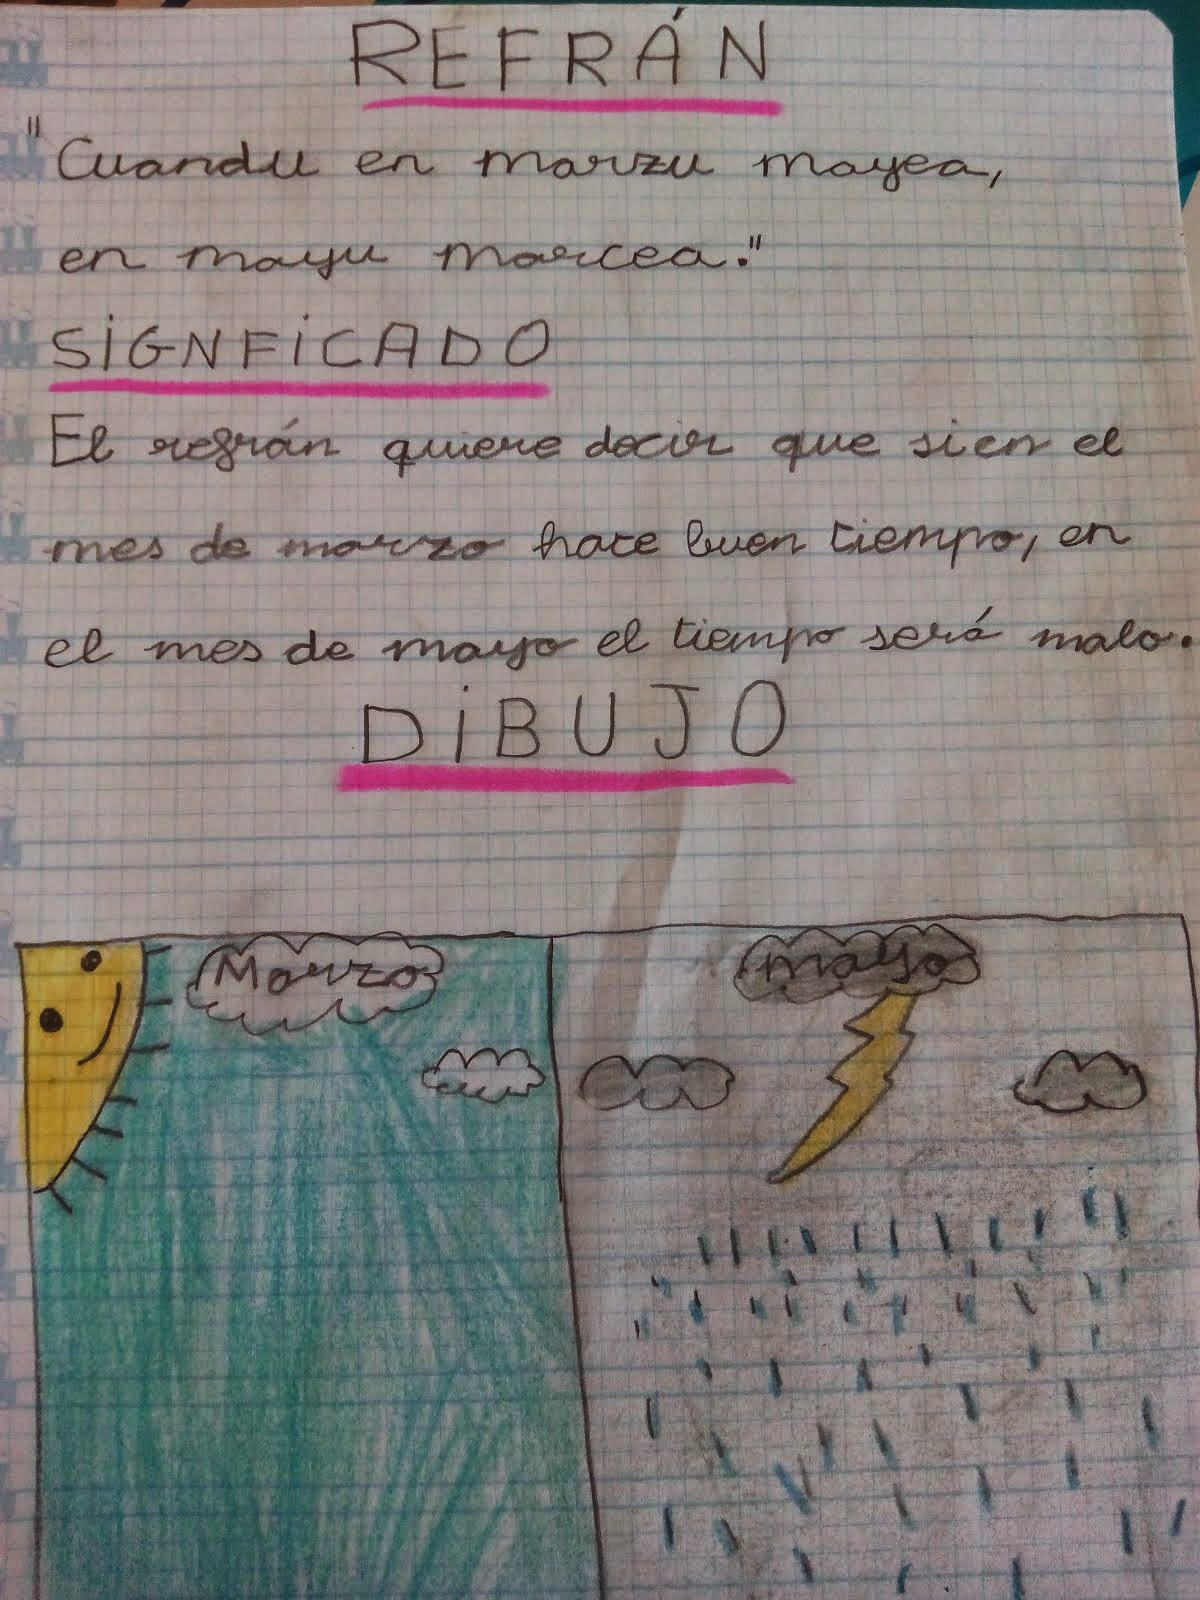 REFRÁN
"Cuandu en marzu mayea,
en mayu marcea."
SIGNFICADO
El refrán quiere decir que si en el
mes de marzo hace buen tiempo, en
el mes de mayo el tiempo será malo.
DIBUJO
Marzo
mayo